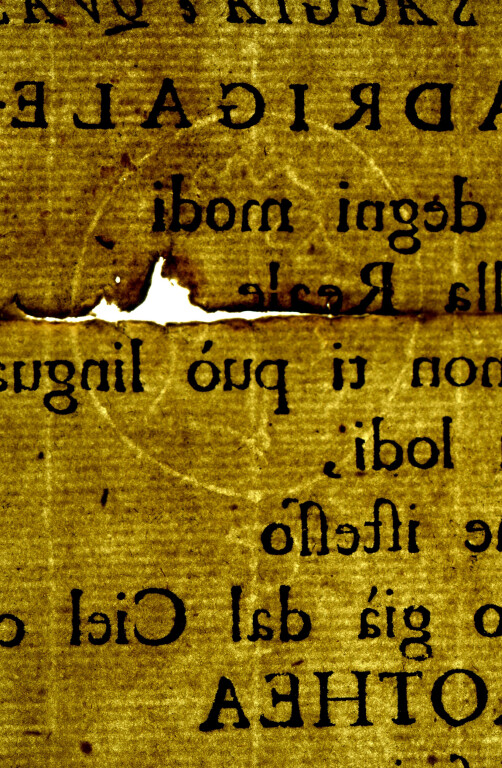 SAGGIA
ADRIGALE
degni modi
lla Reale
non ti può lingua
lodi,
iſteſſo
o già dal Ciel
OTHEA